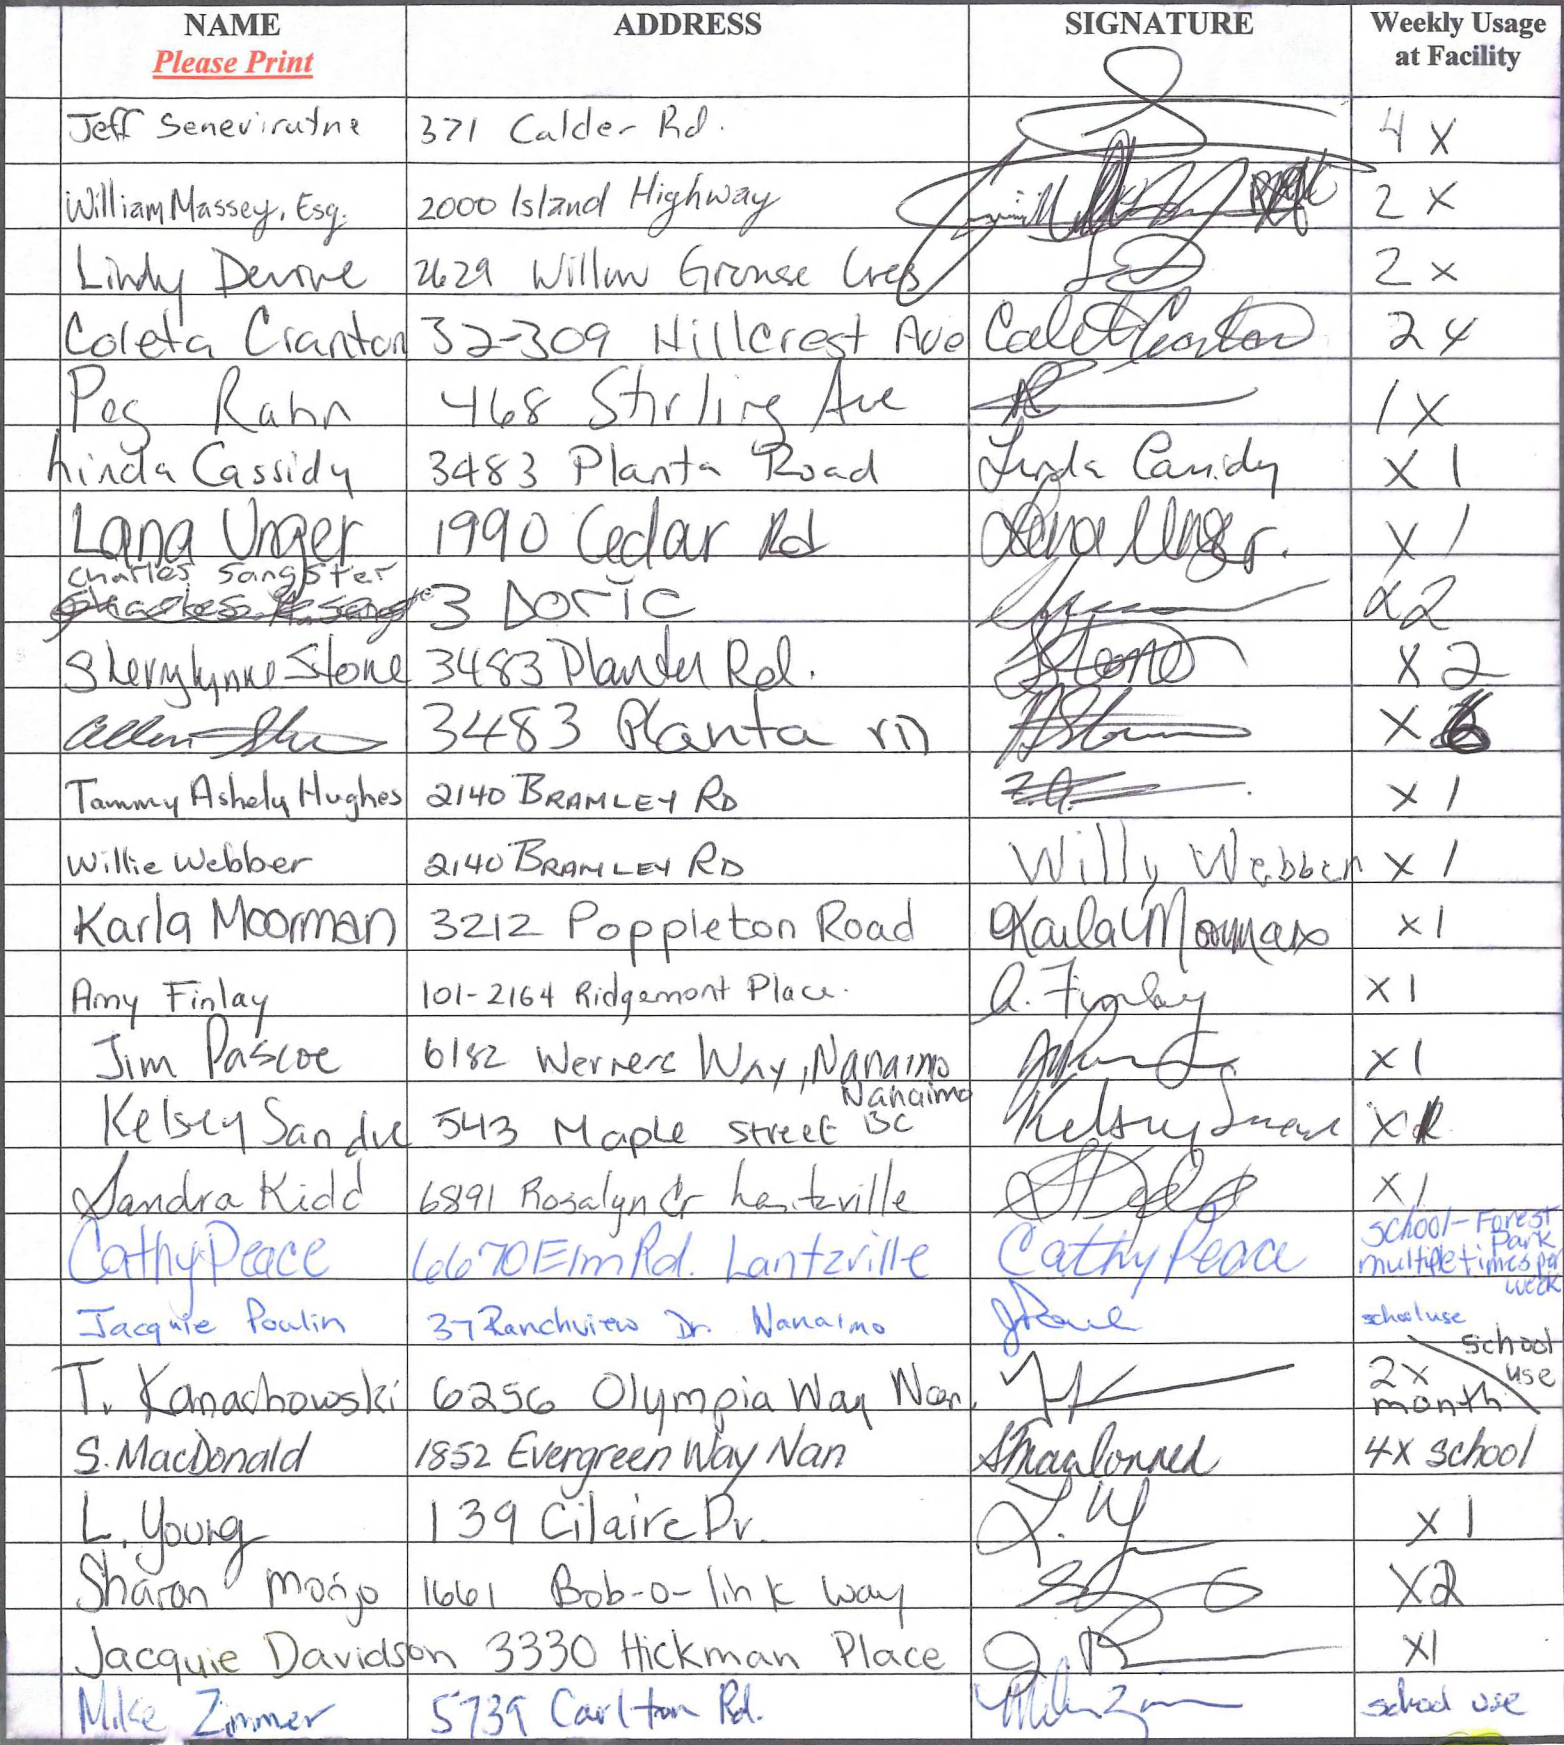 NAME ADDRESS SIGNATURE Weekly Usage
Please Print at Facility
Jeff Seneviratne 371 Calder Rd. 4 X
William Massey, Esq. 2000 Island Highway 2 X
Lindy Devine 2629 Willow Grouse Cres 2 x
Coleta Cranton 32-309 Hillcrest Ave Coleta Cranton 2 x
Peg Rahn 468 Stirling Ave 1 X
Linda Cassidy 3483 Planta Road Linda Cassidy X 1
Lana Unger 1990 Cedar Rd Lana Unger. X 1
Charles Sangster
3 Doric x2
Sherylynne Stone 3483 Planta Rd. Stone X 2
3483 Planta rd X 6
Tammy Ashely Hughes 2140 BRAMLEY RD X 1
Willie Webber 2140 BRAMLEY RD Willy Webber X 1
Karla Moorman 3212 Poppleton Road Karla Moorman X1
Amy Finlay 101-2164 Ridgemont Place. A. Finlay X 1
Jim Pascoe 6182 Werners Way, Nanaimo X 1
Nanaimo
Kelsey 543 Maple street BC Kelsey X
Sandra Kidd 6891 Rosalyn Cr Lantzville X 1
Cathy Peace 6670 Elm Rd. Lantzville Cathy Peace school - Forest
Park
multiple times per
week
Jacquie Poulin 37 Ranchview Dr. Nanaimo school use
school
T. Kanachowski 6256 Olympia Way Nan. 2x use
month
S. MacDonald 1852 Evergreen Way Nan 4x school
L. Young 139 Cilaire Dr. L. Y X 1
Sharon 1661 Bob-o-link Way X2
Jacquie Davidson 3330 Hickman Place X1
Mike Zimmer 5739 Carlton Rd. school use